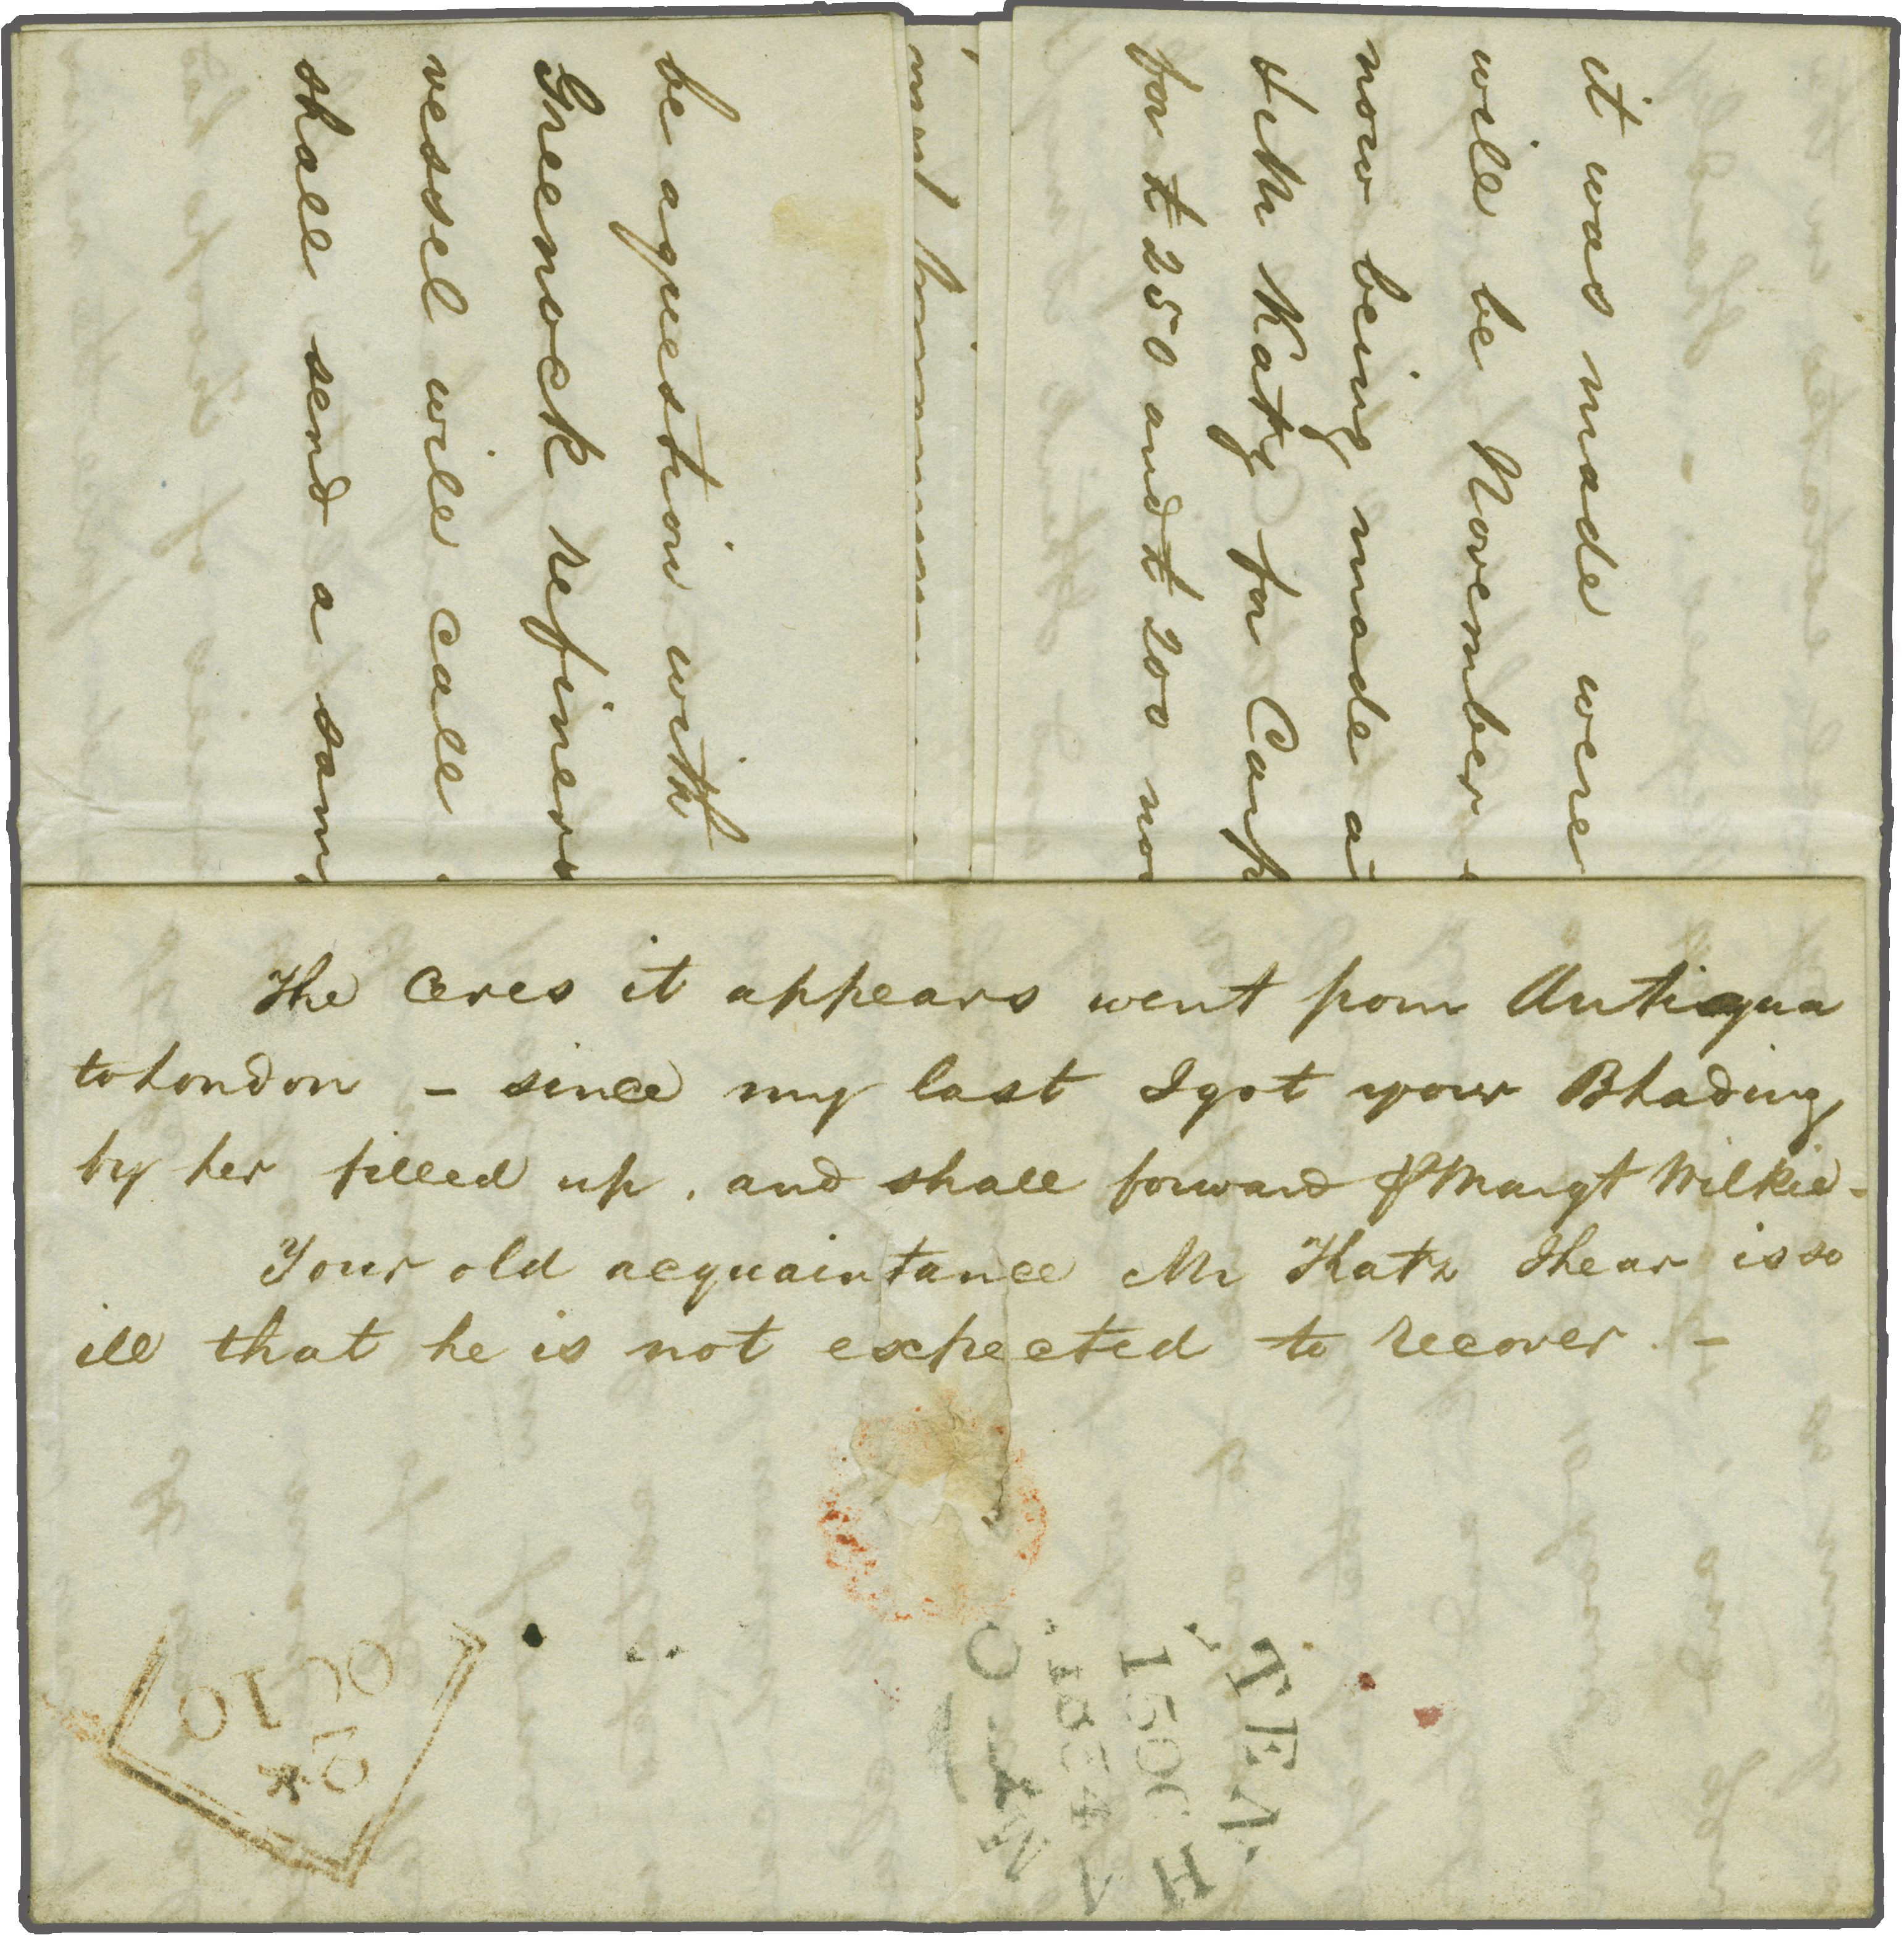 be a question with
Greenock refiners
vessel will call
shall send a sam
it was made were
will be November
now being made a
with Katz for Camp
for £250 and £200 no
The Ceres it appears went from Antigua
to London – since my last I got your B Lading
by her filled up. and shall forward ⅌ Margt Wilkie –
Your old acquaintance Mr Katz I hear is so
ill that he is not expected to recover. –
OC 10
15OC
1834